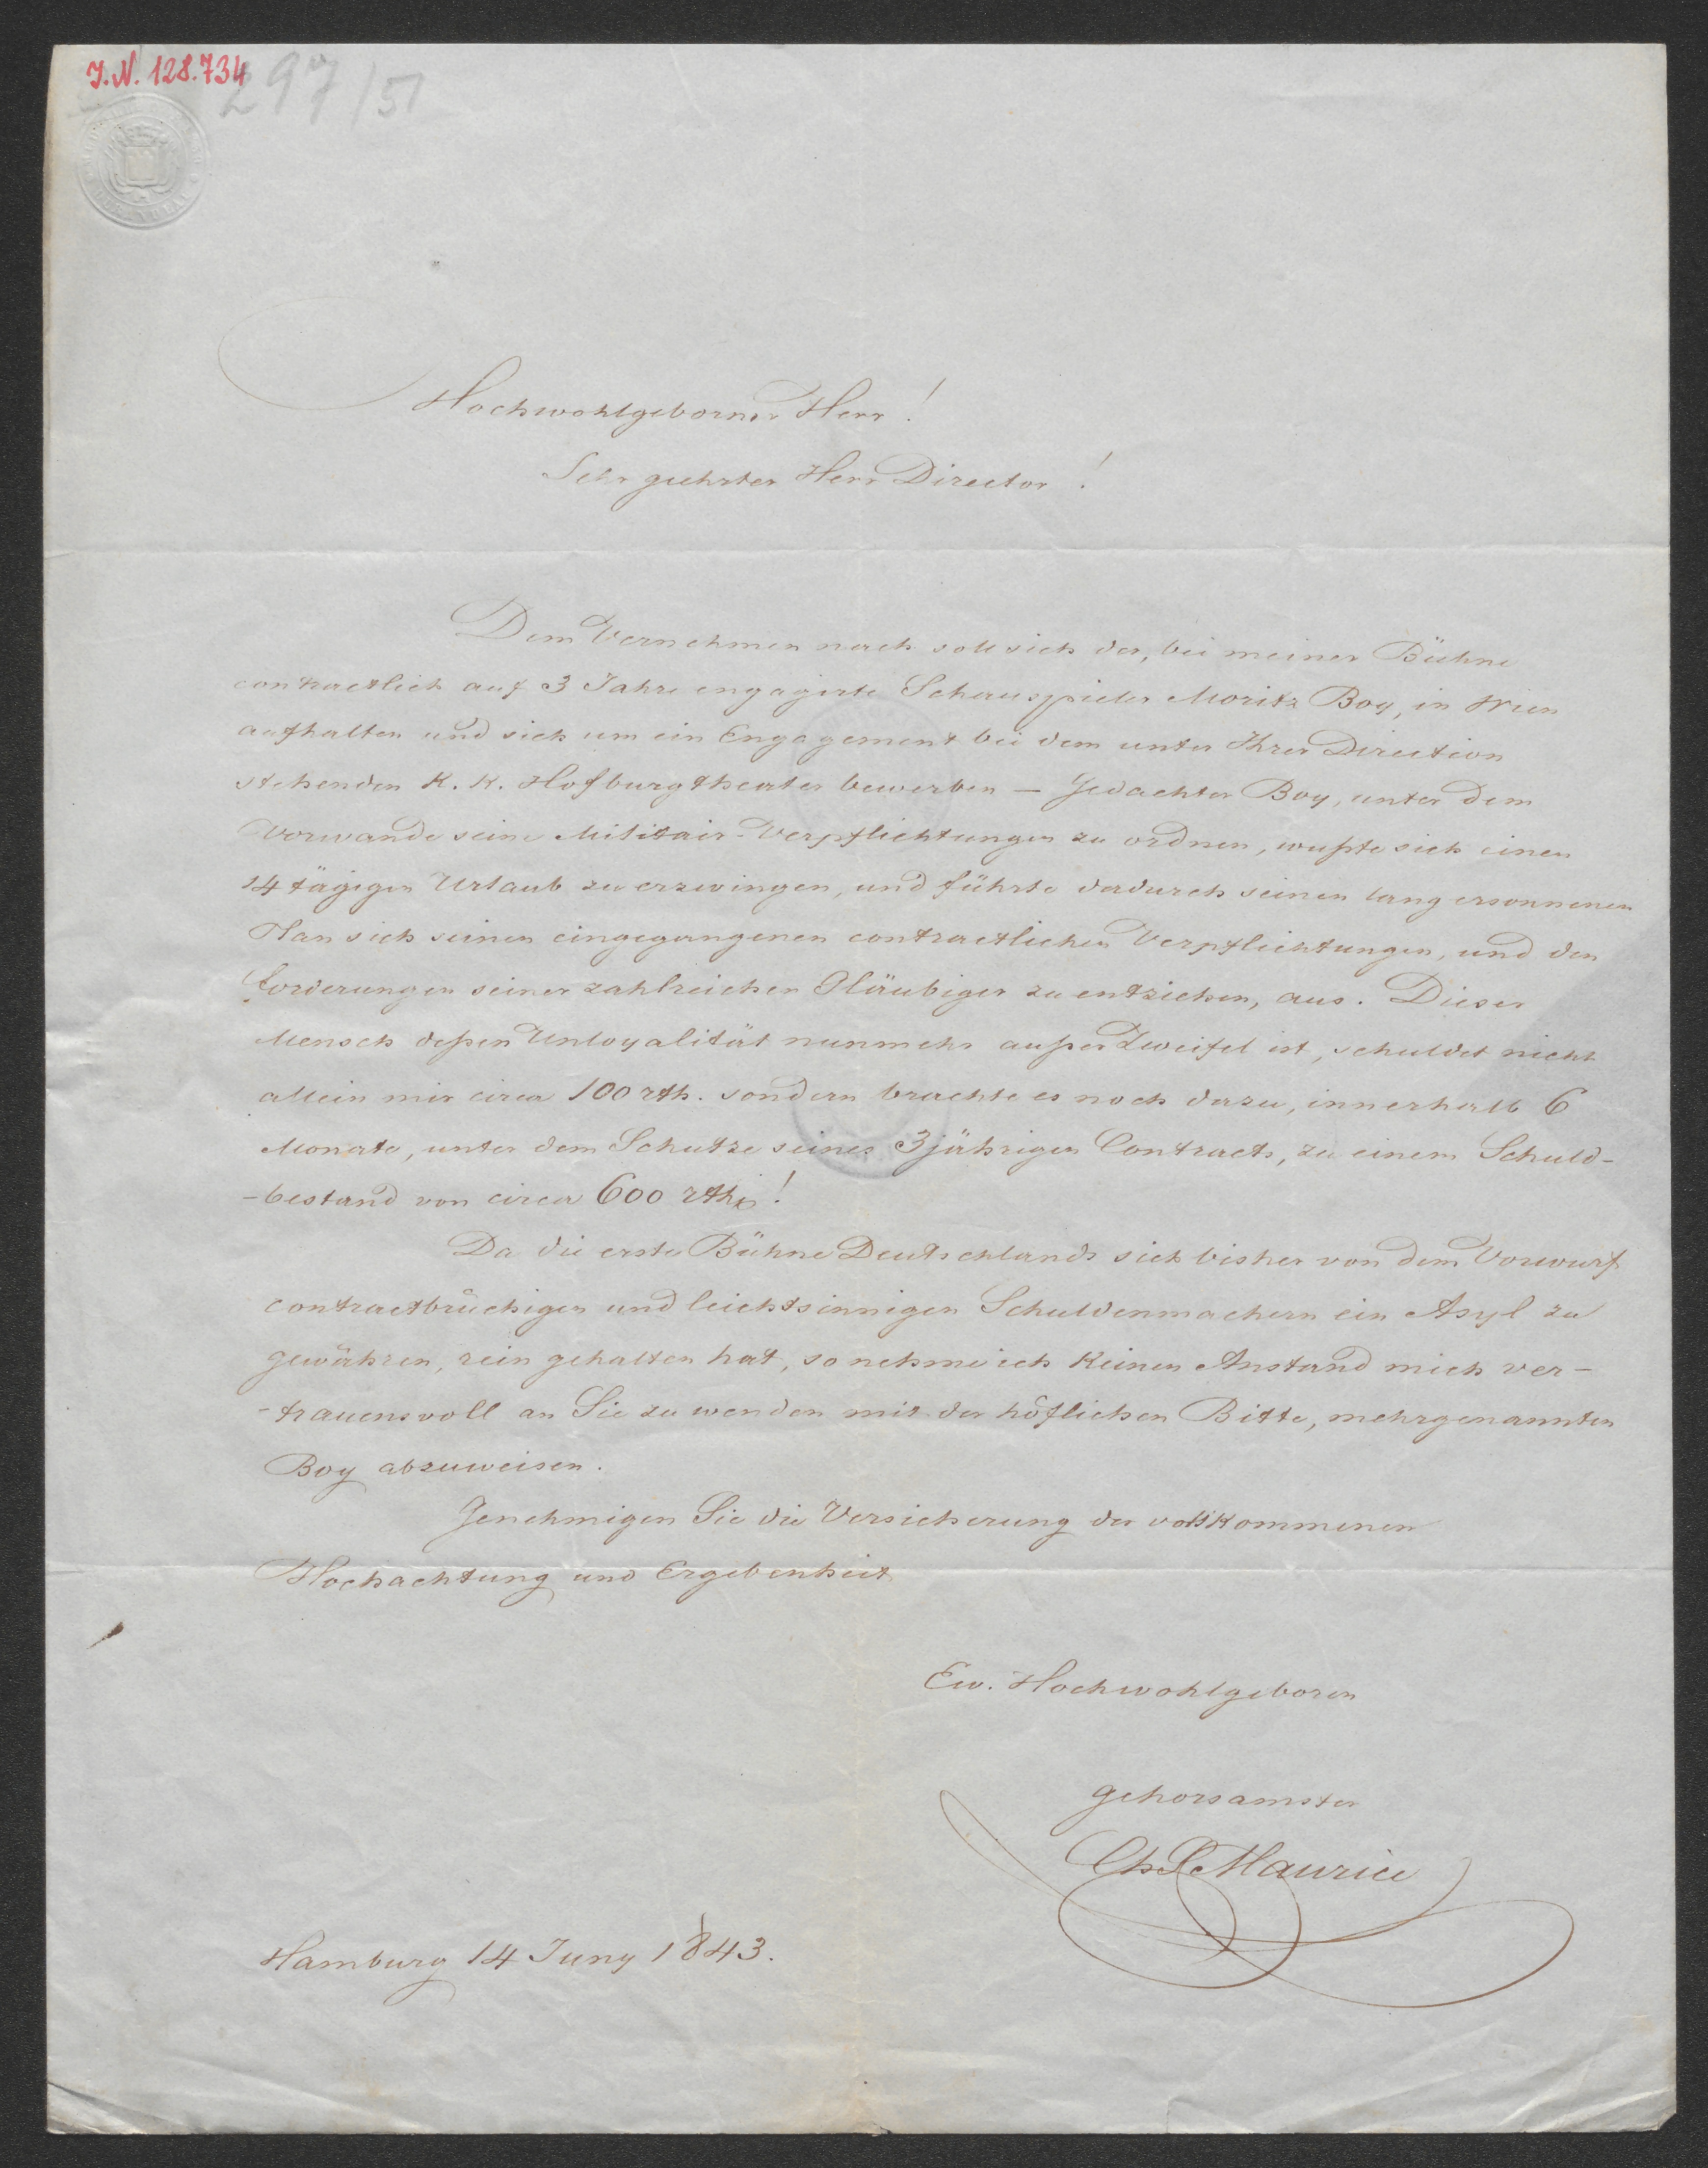 J.N. 128.734
297/51
Hochwohlgeborner Herr!
Sehr geehrter Herr Director!
Dem Vernehmen nach soll sich der, bei meiner Bühne
contractlich auf 3 Jahre engagirte Schauspieler Moritz Boy, in Wien
aufhalten und sich um ein Engagement bei dem unter Ihrer Direction
stehenden K. K. Hofburgtheater bewerben — Gedachter Boy, unter dem
Vorwande seine Militair-Verpflichtungen zu ordnen, wußte sich einen
14 tägigen Urlaub zu erzwingen, und führte dadurch seinen lang ersonnenen
Plan sich seinen eingegangenen contractlichen Verpflichtungen, und den
Forderungen seiner zahlreichen Gläubiger zu entziehen, aus. Dieser
Mensch deßen Unloyalität nunmehr außer Zweifel ist, schuldet nicht
allein mir circa 100 rth. sondern brachte es noch dazu, innerhalb 6
Monate, unter dem Schutze seines 3 jährigen Contracts, zu einem Schuld-
-bestand von circa 600 rth!
Da die erste Bühne Deutschlands sich bisher von dem Vorwurf
contractbrüchigen und leichtsinnigen Schuldenmachern ein Asyl zu
gewähren, rein gehalten hat, so nehme ich keinen Anstand mich ver-
-trauensvoll an Sie zu wenden mit der höflichen Bitte, mehrgenannten
Boy abzuweisen.
Genehmigen Sie die Versicherung der vollkommenen
Hochachtung und Ergebenheit
Ew. Hochwohlgeboren
gehorsamster
Ch Maurice
Hamburg 14 Juny 1843.